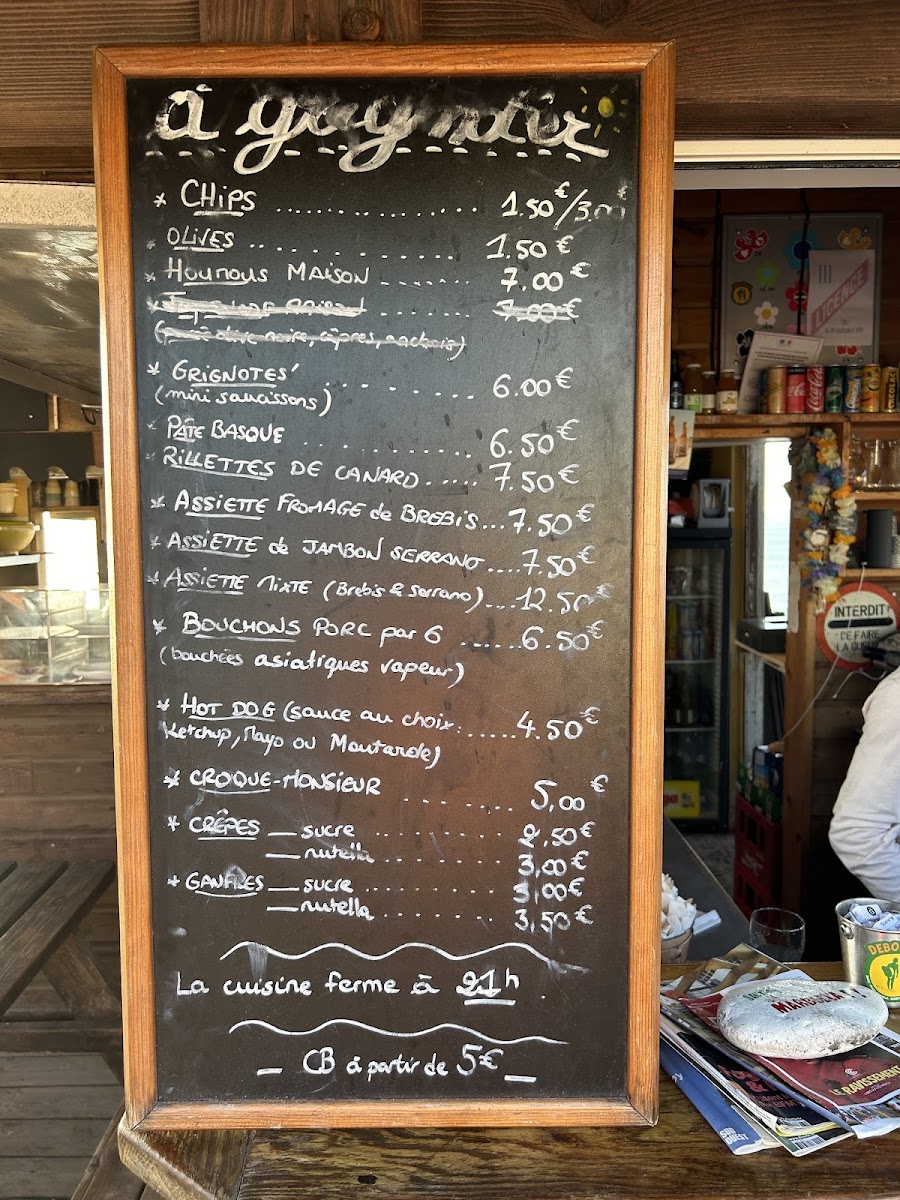 à grignoter
* CHIPS .................. 1.50€/3.00
* OLIVES .................. 1.50€
* Houmous MAISON ....... 7.00€
7.00€
* GRIGNOTES' ............ 6.00€
(mini saucissons)
* PÂTE BASQUE ............ 6.50€
* RILLETTES DE CANARD ..... 7.50€
* ASSIETTE FROMAGE de BREBIS ... 7.50€
* ASSIETTE de JAMBON SERRANO .... 7.50€
* ASSIETTE MIXTE (Brebis & Serrano) .... 12.50€
* BOUCHONS PORC par 6 ..... 6.50€
(bouchées asiatiques vapeur)
* HOT DOG (sauce au choix: ...... 4.50€
Ketchup, Mayo ou Moutarde)
* CROQUE-MONSIEUR ....... 5,00€
* CRÊPES — sucre .......... 2,50€
— nutella ......... 3,00€
* GANFRES — sucre .......... 3,00€
— nutella ......... 3,50€
La cuisine ferme à 21h
— CB à partir de 5€ —
III
LICENCE
INTERDIT
DE FAIRE
LA GUEULE
Coca-Cola
DEBO
MARBELLA !
LE RAVISSEMENT
SUD
OUEST